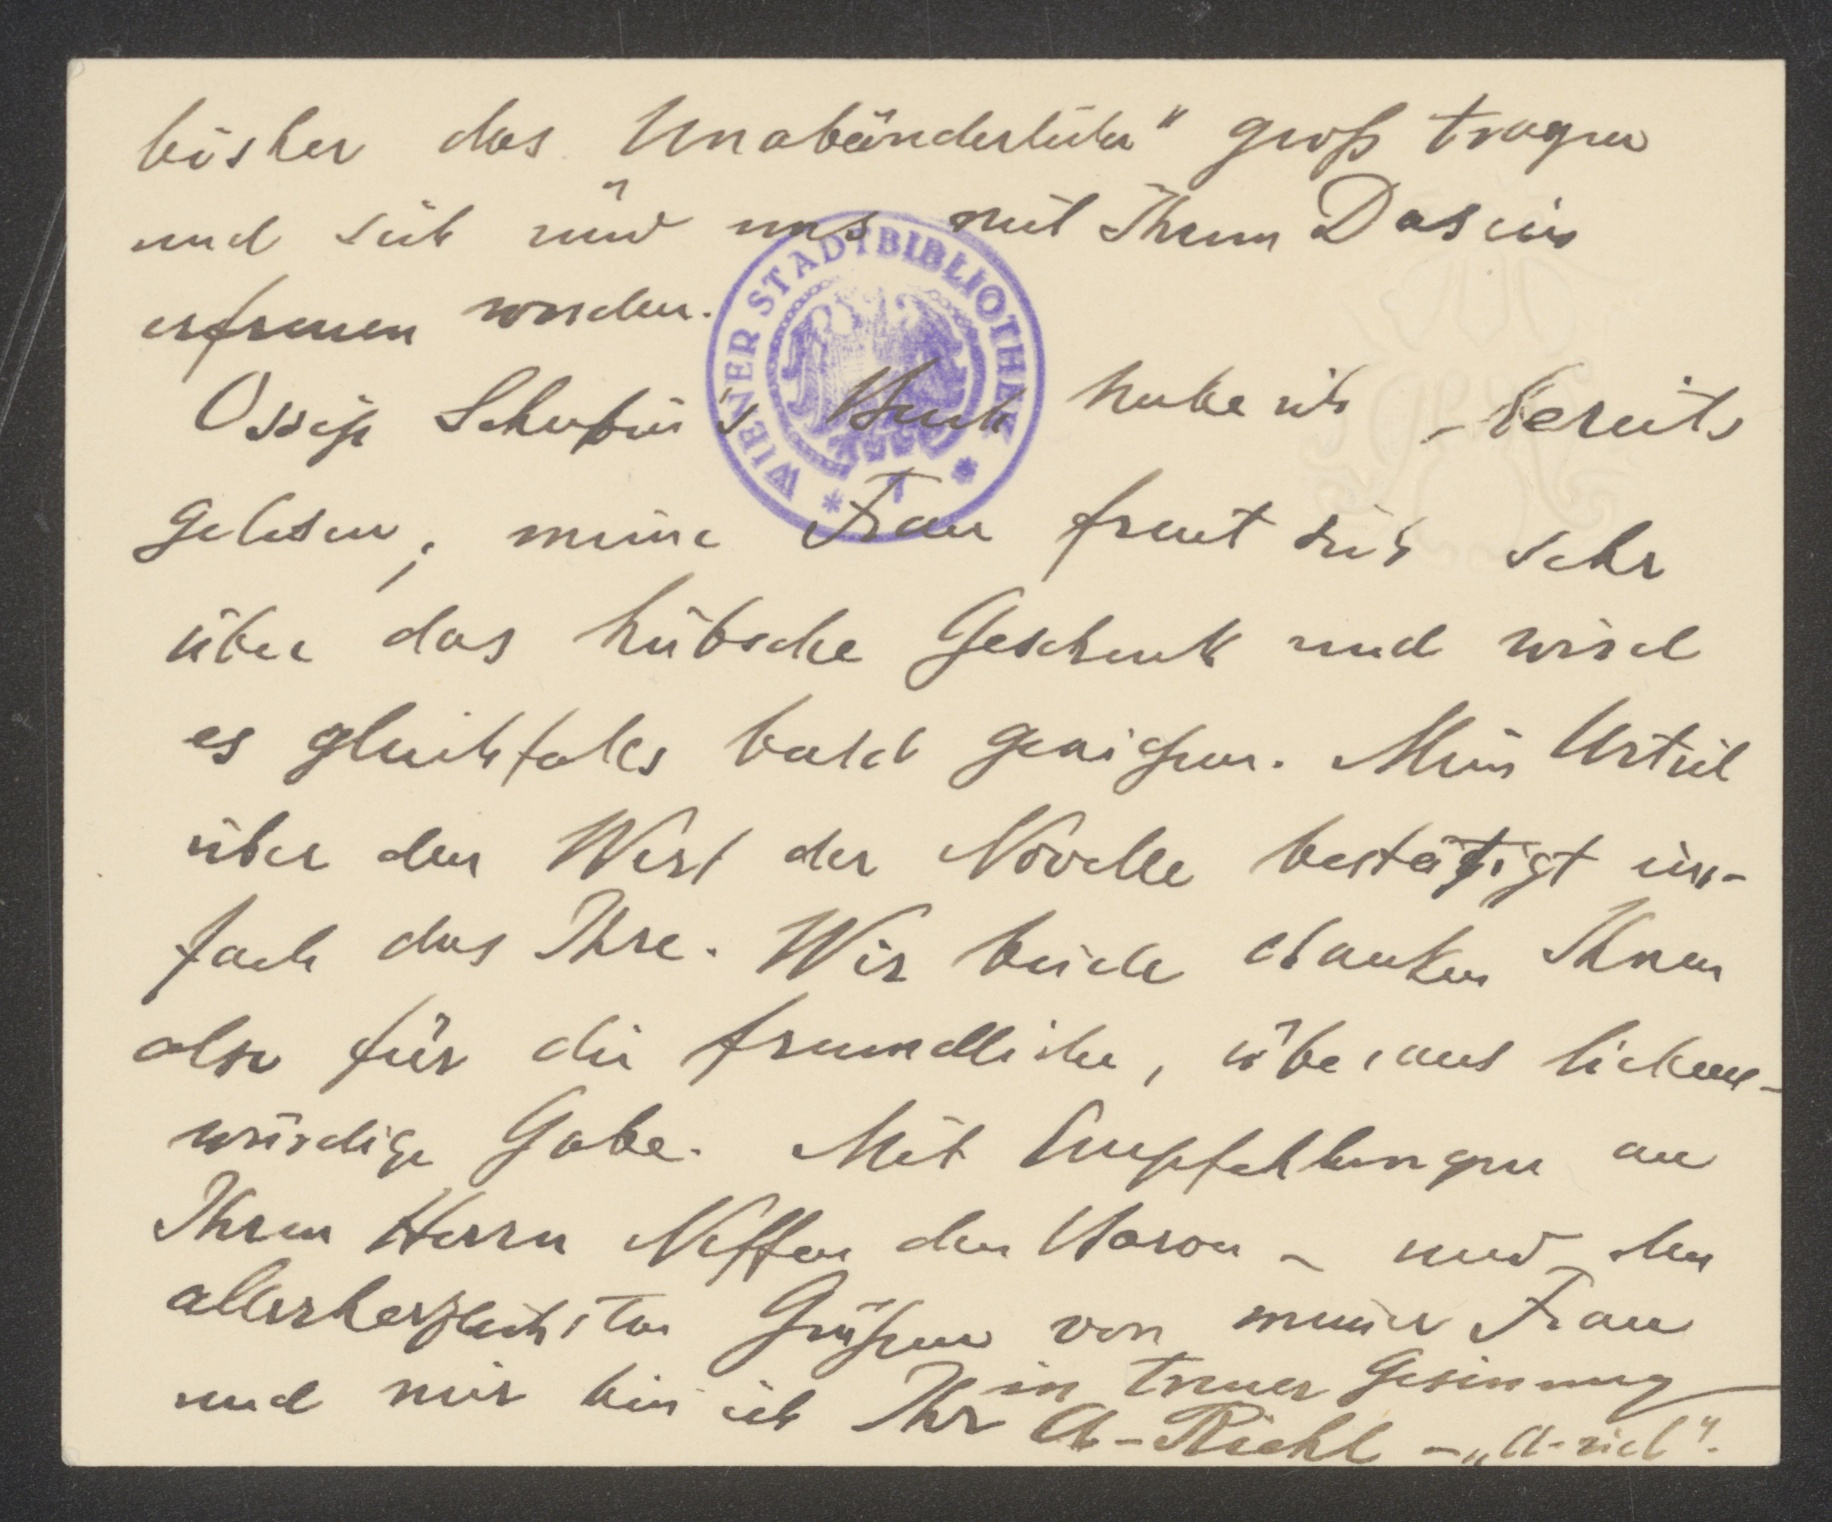 bisher das Unabänderliche" groß tragen
und sich und uns mit Ihrem Dasein
erfreuen werden.
WIENER STADTBIBLIOTHEK
Ossip Schubin's Buch habe ich – bereits
gelesen; meine Frau freut sich sehr
über das hübsche Geschenk und wird
es gleichfalls bald genießen. Mein Urteil
über den Wert der Novelle bestätigt ein-
fach das Ihre. Wir beide danken Ihnen
also für die freundliche, überaus liebens-
würdige Gabe. Mit Empfehlungen an
Ihren Herrn Neffen den Baron – und den
allerherzlichsten Grüßen von meiner Frau
und mir bin ich Ihr in treuer Gesinnung
A. Riehl – „A-riel".